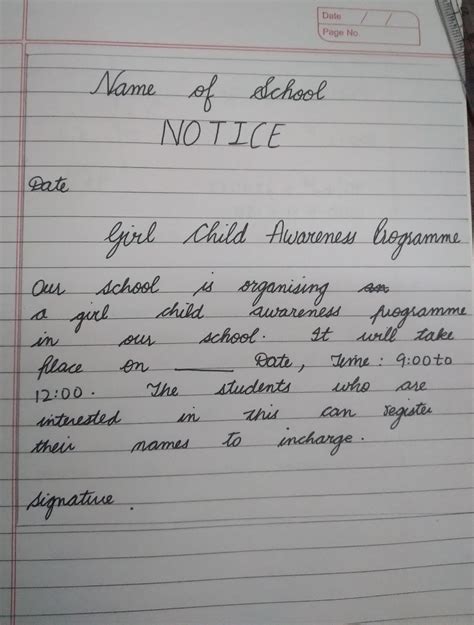 Date / /
Page No.
Name of School
NOTICE
Date
Girl Child Awareness Programme
Our school is organising an
a girl child awareness programme
in our school. It will take
place on ______ Date, Time: 9:00 to
12:00. The students who are
interested in this can register
their names to incharge.
Signature.